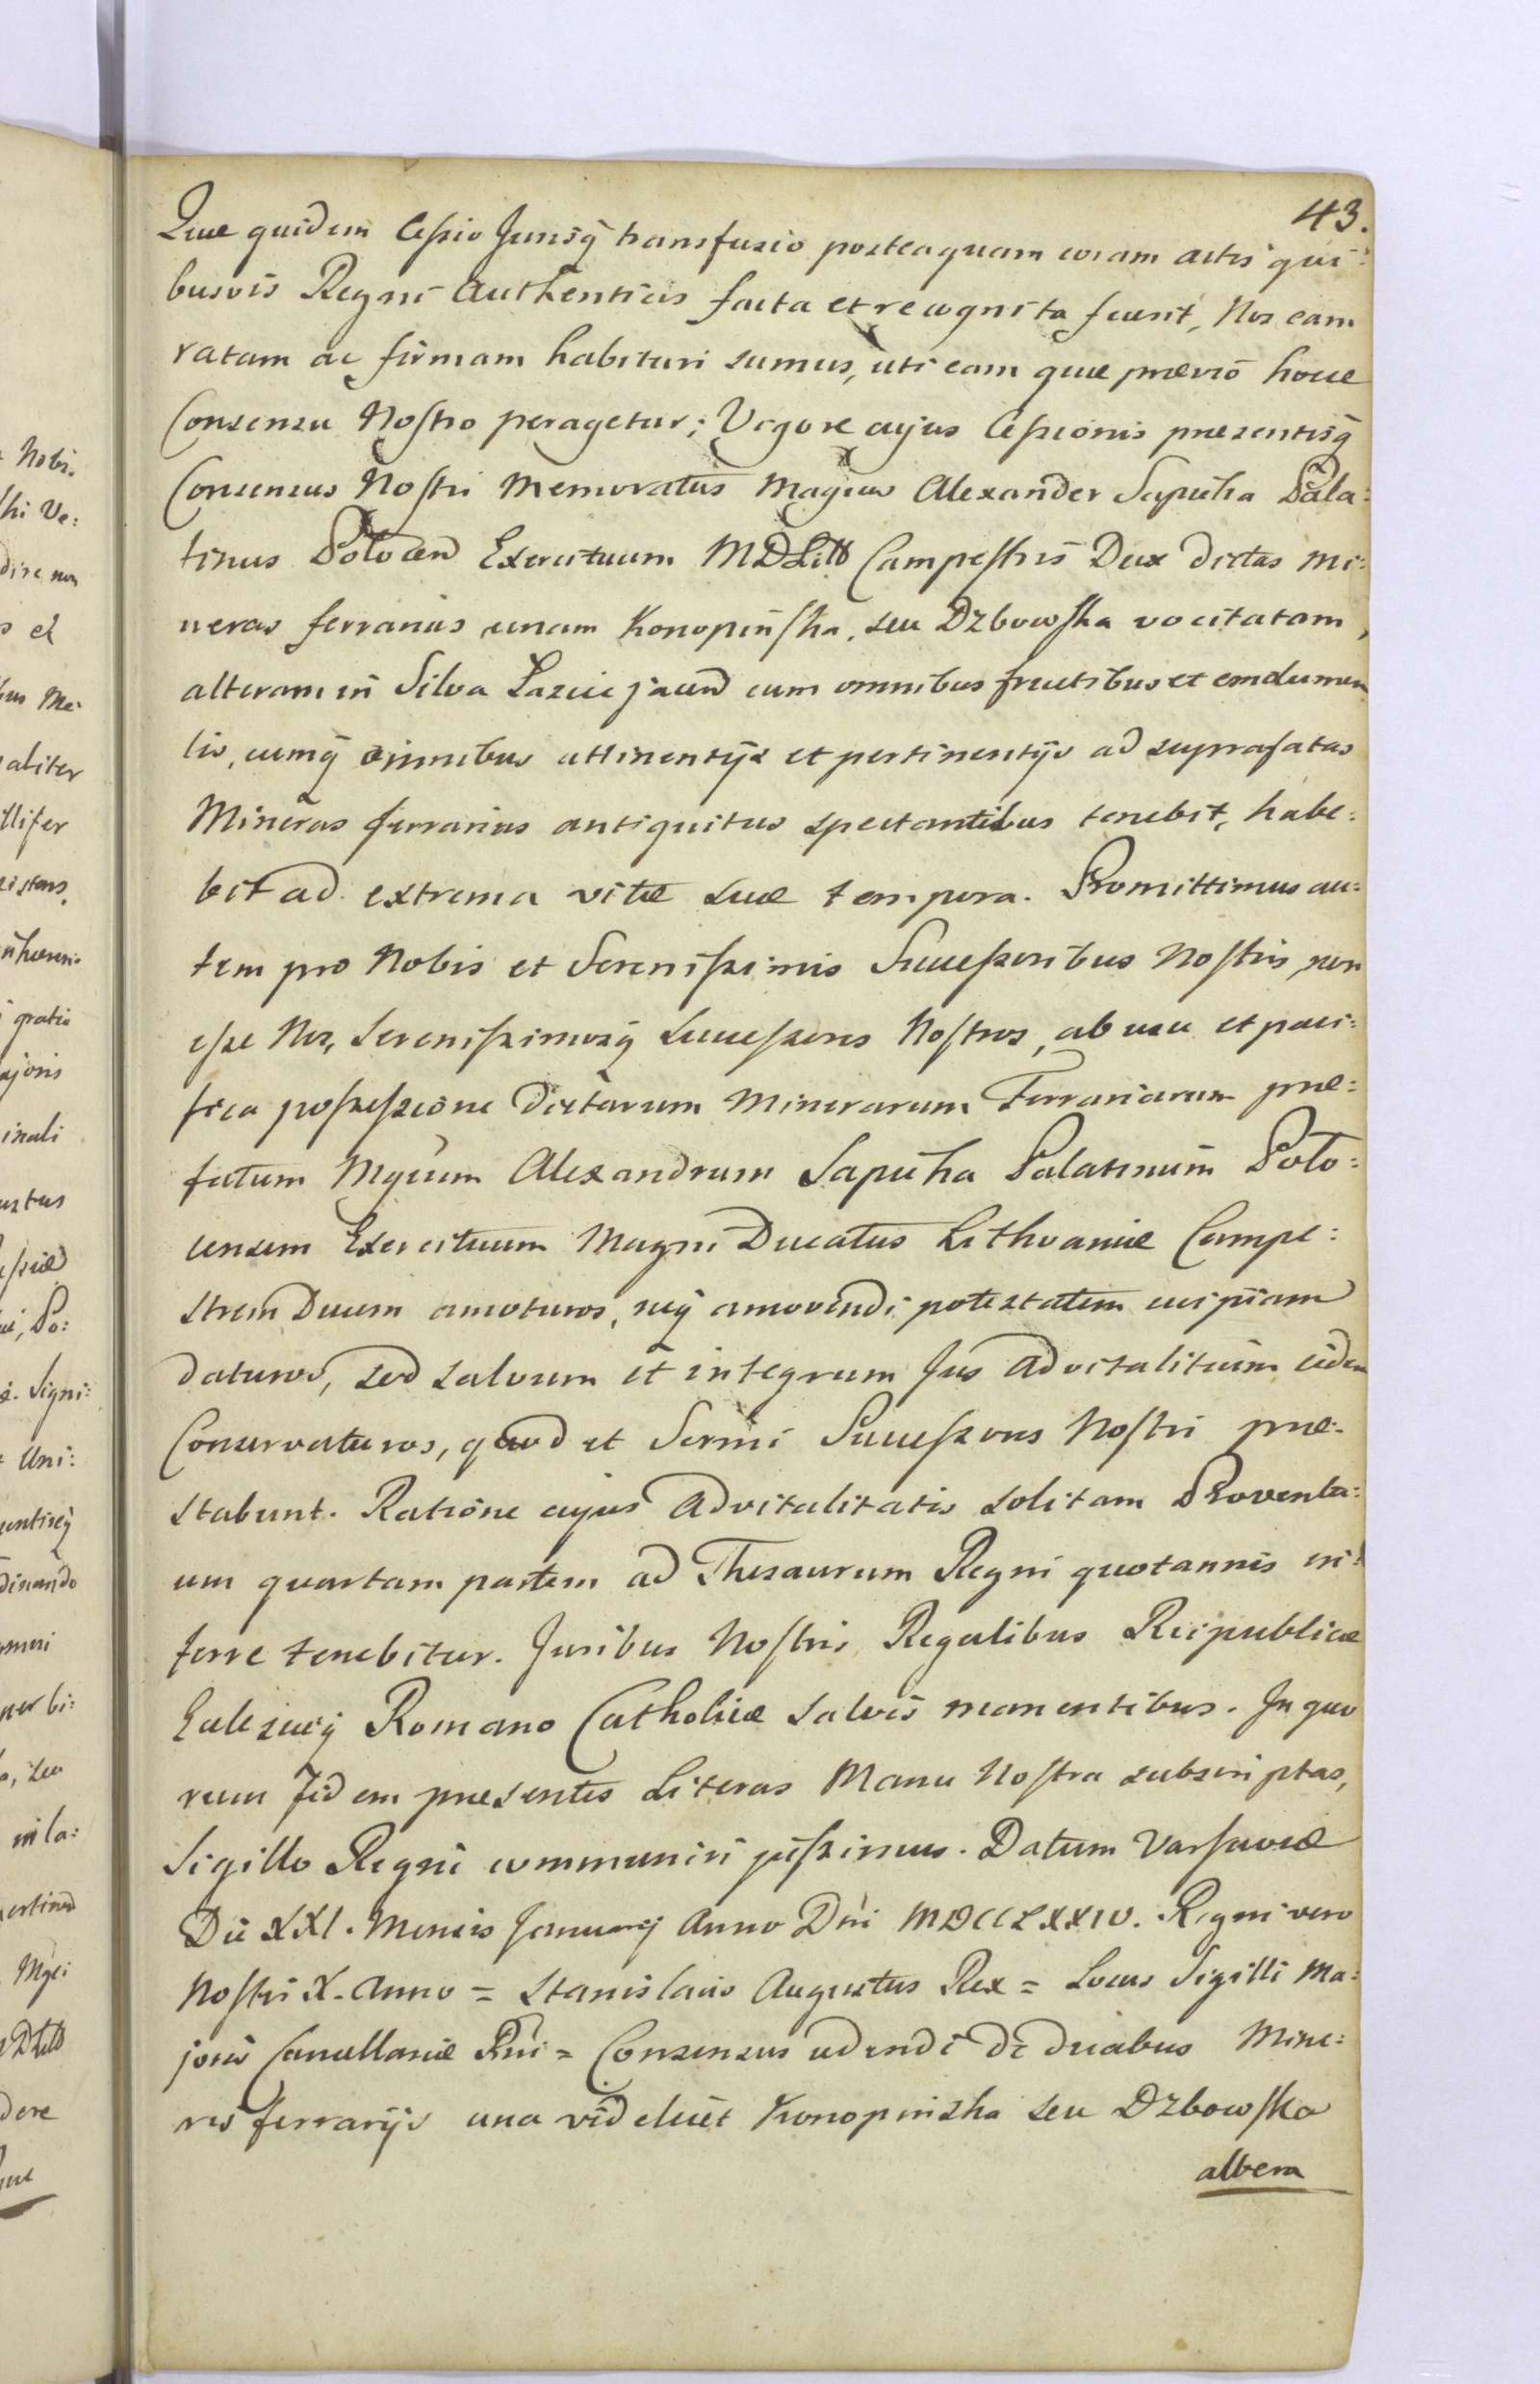 43.
Quæ quidem Cessio Jurisq̃ transfusio posteaquam coram actis qui:
busvis Regni Authenticis facta et recognita fuerit, Nos eam
ratam ac firmam habituri sumus, uti eam quæ prævio hocce
Consensu Nostro peragetur; Vigore cujus Cessionis præsentisq̃
Consensus Nostri Memoratus Magcus Alexander Sapieha Pala:
tinus Polocen Exercituum MDLitt Campestris Dux dictas Mi:
neras ferrarias unam Konopinska, seu Dzbowska vocitatam,
alteram in Silva Lazcie jacen cum omnibus fructibus et emolumen
tis, cumq̃ omnibus attinentijs et pertinentijs ad suprafatas
Mineras ferrarias antiquitus spectantibus tenebit, habe:
bit ad extrema vitæ suæ tempora. Promittimus au:
tem pro Nobis et Serenissimis Successoribus Nostris, non
esse Nos, Serenissimosq̃ Successores Nostros, ab usu et paci:
fica possessione dictarum Minerarum Ferrariarum præ:
fatum Mgcum Alexandrum Sapieha Palatinum Polo:
censem Exercituum Magni Ducatus Lithvaniæ Campe:
strem Ducem amoturos, neq̃ amovendi potestatem cuipiam
daturos, sed salvum et integrum Jus Advitalitium eidem
Conservaturos, quod et Sermi Successores Nostri præ:
stabunt. Ratione cujus Advitalitatis solitam Proventu:
um quartam partem ad Thesaurum Regni quotannis in:
ferre tenebitur. Juribus Nostris Regalibus Reipublicæ
Ecclesiæq̃ Romano Catholicæ salvis manentibus. In quo
rum fidem præsentes Literas Manu Nostra subscriptas,
Sigillo Regni communiri jussimus. Datum Varsaviæ
Die XXI. Mensis Januarij Anno Dni MDCCLXXIV. Regni vero
Nostri X. Anno = Stanislaus Augustus Rex = Locus Sigilli Ma:
joris Cancellariæ Rni = Consensus cedendi de duabus Mine:
ris ferrarijs una videlicet Konopinska seu Dzbowska
altera